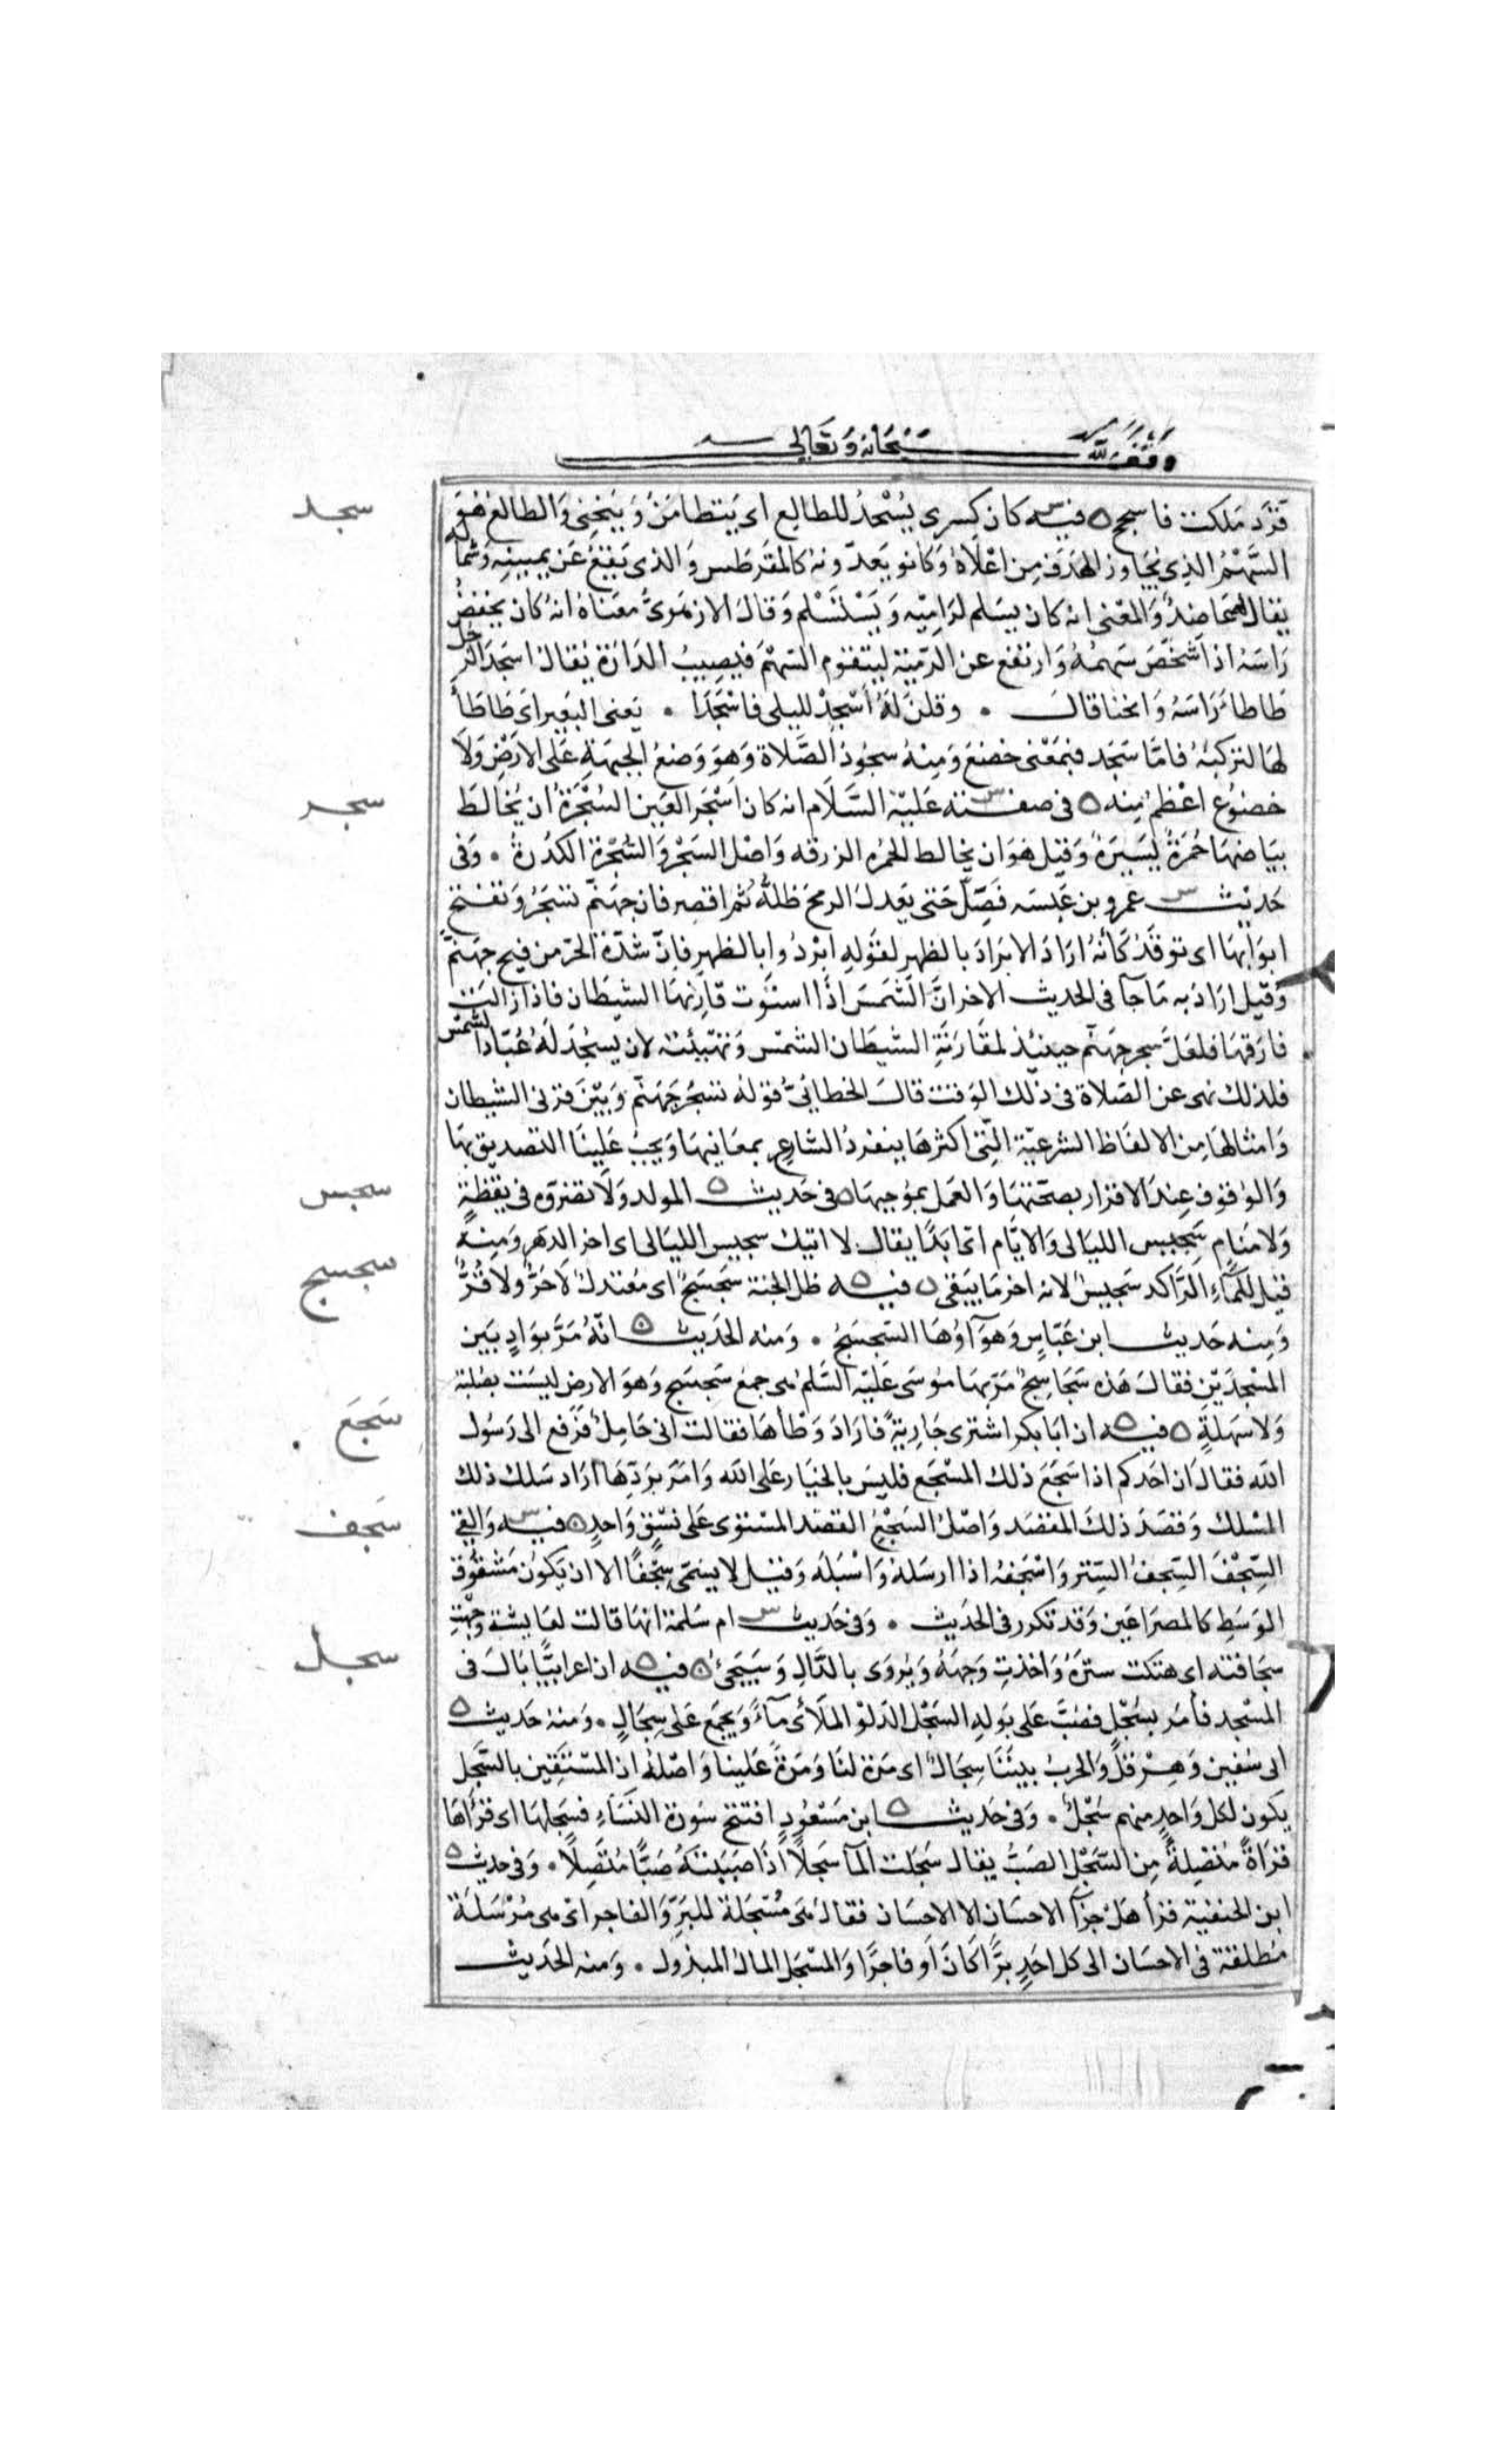 وقف لله سبحانه وتعالى
قرد ملكت فاسجح ه فيه كان كسرى يسجد للطالع اى يتطامن وينحنى والطالع هو
سجد
السهم الذى يجاوز الهدف من اعلاه وكانو يعدونه كالمقرطس والذى يقع عن يمينه وشماله
يقال له عاضد والمعنى انه كان يسلم لراميه ويستسلم وقال الازهرى معناه انه كان يخفض
راسه اذا شخص سهمه وارتفع عن الرمية ليتقوم السهم فيصيب الدارة يقال اسجد الرجل
طاطأ راسه وانحنا قال • وقلن له اسجد لليلى فاسجدا • يعنى البعير اى طاطأ
لها لتركبه فاما سجد فبمعنى خضع ومنه سجود الصلاة وهو وضع الجبهة على الارض ولا
خضوع اعظم منه ه فى صفته عليه السلام انه كان اسجر العين السجرة ان يخالط
سجر
بياضها حمرة يسيرة وقيل هو ان يخالط الحمره الزرقه واصل السجر والسجرة الكدرة • وفى
حديث عمرو بن عبسه فصل حتى يعدل الرمح ظله ثم اقصر فان جهنم تسجر وتفتح
ابوابها اى توقد كأنه اراد الابراد بالظهر لقوله ابردوا بالظهر فان شدة الحر من فيح جهنم
وقيل اراد به ما جآ فى الحديث الاخر ان الشمس اذا استوت قارنها الشيطان فاذا زالت
فارقها فلعل سجر جهنم حينئذ لمقارنة الشيطان الشمس وتهيئته لان يسجد له عباد الشمس
فلذلك نهى عن الصلاة فى ذلك الوقت قال الخطابى قوله تسجر جهنم وبين قرنى الشيطان
وامثالها من الالفاظ الشرعية التى اكثرها ينفرد الشارع بمعانيها ويجب علينا التصديق بها
والوقوف عند الاقرار بصحتها والعمل بموجبها ه فى حديث المولد ولا تضروه فى يقظة
سجس
ولا منام سجيس الليالى والايام اى ابدا يقال لا اتيك سجيس الليالى اى اخر الدهر ومنه
قيل للمآء الراكد سجيس لانه اخر ما يبقى ه فيه ظل الجنة سجسج اى معتدل لا حر ولا قر
سجسج
ومنه حديث ابن عباس وهوآؤها السجسج • ومنه الحديث انه مر بواد بين
المسجدين فقال هذه سجاسج مر بها موسى عليه السلم هى جمع سجسج وهو الارض ليست بصلبة
ولا سهلة ه فيه ان ابا بكر اشترى جارية فاراد وطأها فقالت انى حامل فرفع الى رسول
سجع
الله فقال ان احدكم اذا سجع ذلك المسجع فليس بالخيار على الله وامر بردها اراد سلك ذلك
المسلك وقصد ذلك المقصد واصل السجع القصد المستوى على نسق واحد ه فيه والقى
سجف
السجف السجف الستر واسجفه اذا ارسله واسبله وقيل لا يسمى سجفا الا ان يكون مشقوق
الوسط كالمصراعين وقد تكرر فى الحديث • وفى حديث ام سلمة انها قالت لعايشة وجهت
سجافته اى هتكت ستره واخذت وجهه ويروى بالدال وسيجئ ه فيه ان اعرابيا بال فى
سجل
المسجد فأمر بسجل فصب على بوله السجل الدلو الملأى مآء ويجمع على سجال • ومنه حديث
ابى سفين وهرقل والحرب بيننا سجال اى مرة لنا ومرة علينا واصله ان المستقين بالسجل
يكون لكل واحد منهم سجل • وفى حديث ابن مسعود افتتح سورة النسآء فسجلها اى قرأها
قراة متصلة من السجل الصب يقال سجلت المآ سجلا اذا صببته صبا متصلا • وفى حديث
ابن الحنفية قرأ هل جزآ الاحسان الا الاحسان فقال هى مسجلة للبر والفاجر اى هى مرسلة
مطلقة فى الاحسان الى كل احد برا كان او فاجرا والمسجل المال المبذول • ومنه الحديث